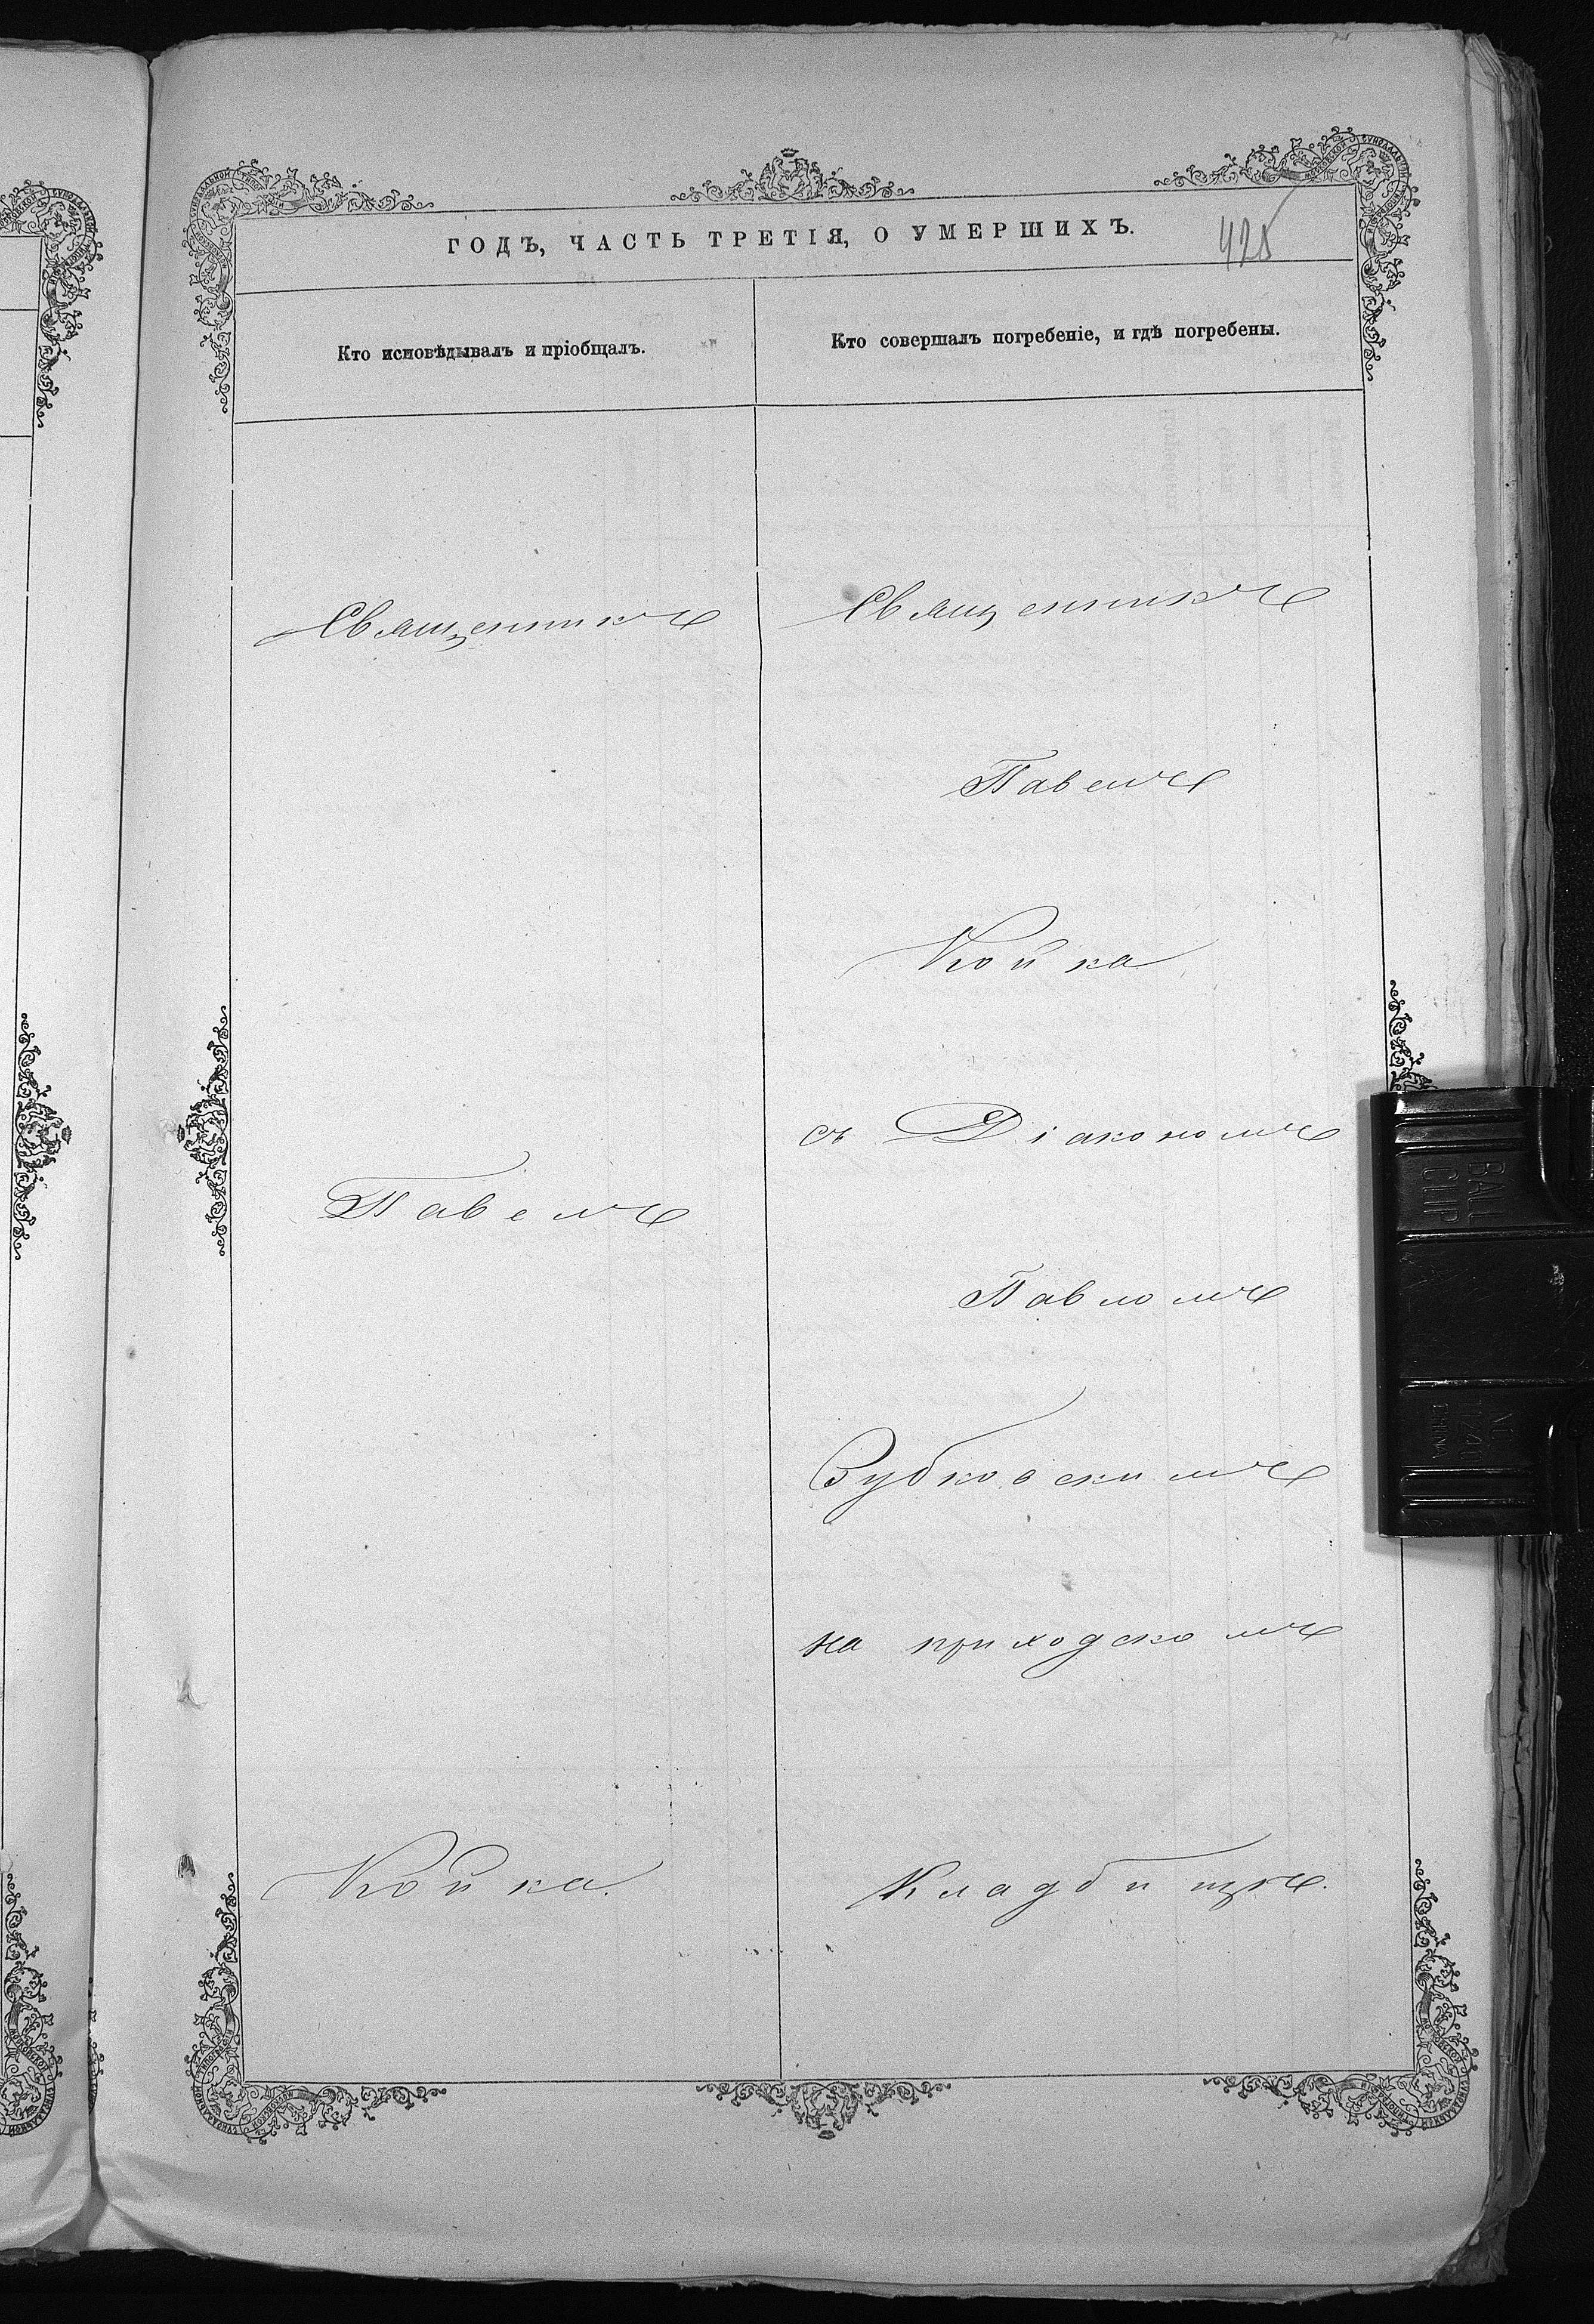 ГОДЪ, ЧАСТЬ ТРЕТІЯ, О УМЕРШИХЪ.
425
Кто исповѣдывалъ и пріобщалъ.
Кто совершалъ погребеніе, и гдѣ погребены.
Священникъ
Павелъ
Койка.
Священникъ
Павелъ
Койка
съ Діакономъ
Павломъ
Зубковскимъ
на приходскомъ
Кладбищѣ.
BALL
CLIP
CHINA